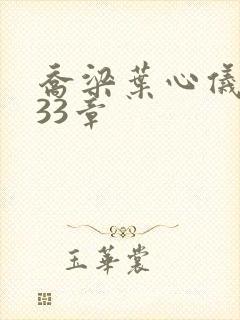 乔梁葉心儀
33章
玉華裳